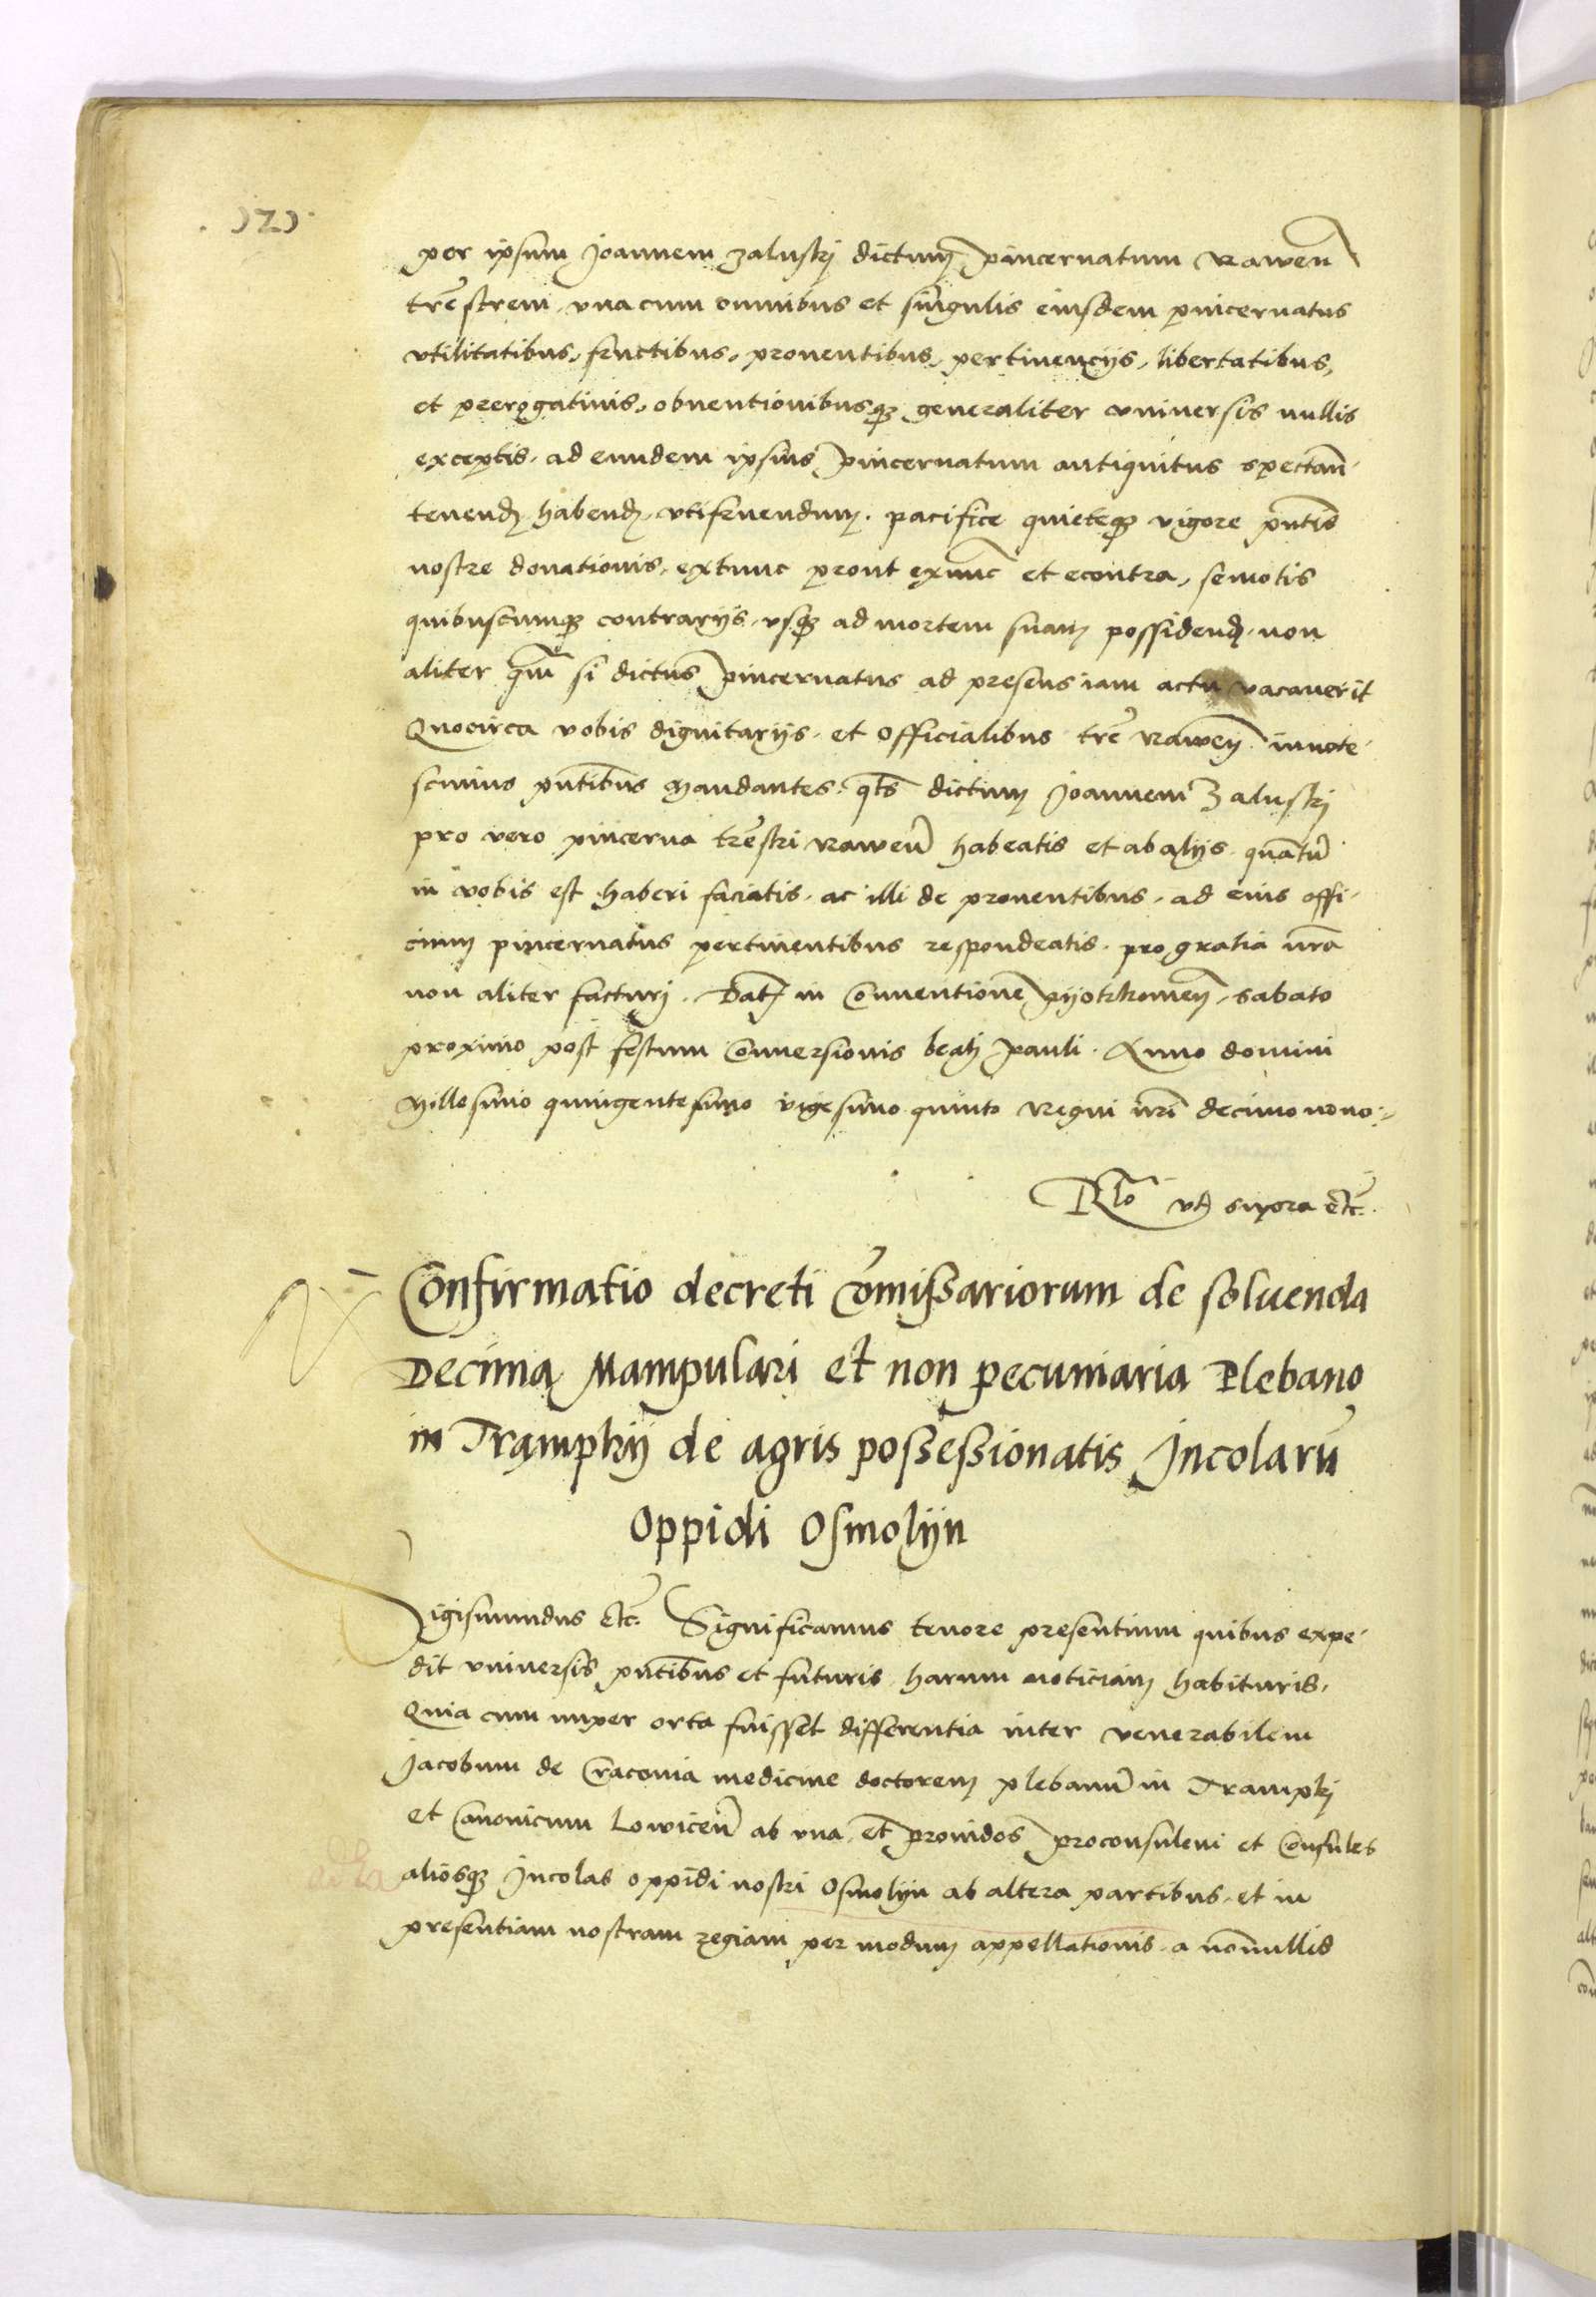 per ipsum Joannem Zaluskj dictum pincernatum Rawen̄
tr̄estrem vna cum omnibus et singulis eiusdem pincernatus
vtilitatibus, fructibus, prouentibus, pertinencÿs, libertatibus,
et prerogatiuis, obuentionibusqꝫ generaliter vniuersis nullis
exceptis, ad eundem ipsius pincernatum antiquitus spectan̄
tenendꝫ habendꝫ vtifruendum. pacifice quieteqꝫ vigore pn̄tis
nostre donationis, extunc prout exnunc et econtra, semotis
quibuscumqꝫ contrarÿs, vsqꝫ ad mortem suam possidendꝫ. non
aliter qm̄ si dictus pincernatus ad presens iam actu vacauerit
Quocirca vobis dignitarÿs et officialibus tr̄e Rawen̄ innote
scimus pn̄tibus Mandantes. qt̄s dictum Joannem Zaluskj
pro vero pincerna tr̄estri Rawen̄ habeatis et ab alÿs quantū
in vobis est haberi faciatis. ac illi de prouentibus. ad eius offi
cium pincernatus pertinentibus respondeatis. pro gratia nr̄a
non aliter facturj. Datꝫ in Conuentione pÿotrkowien̄, sabato
proximo post festum Conuersionis beatj pauli. Anno domini
Millesimo quingentesimo vigesimo quinto Regni nr̄i decimonono
Rl̄o vt supra etc̄.
Confirmatio decreti Cōmissariorum de soluenda
Decima Manipulari et non pecuniaria Plebano
in Trąmpkÿ de agris possessionatis Incolarū
Oppidi Osmolÿn
Sigismundus etc̄. Significamus tenore presentium quibus expe
dit vniuersis pn̄tibus et futuris harum noticiam habituris.
Quia cum nuper orta fuisset differentia inter venerabilem
Jacobum de Cracouia medicine doctorem plebanū in Trampkj
et Canonicum Lowicen̄ ab vna, et prouidos proconsulem et Consules
aliosqꝫ Incolas oppidi nostri Osmolÿn ab altera partibus, et in
presentiam nostram regiam per modum appellationis a nonnullis